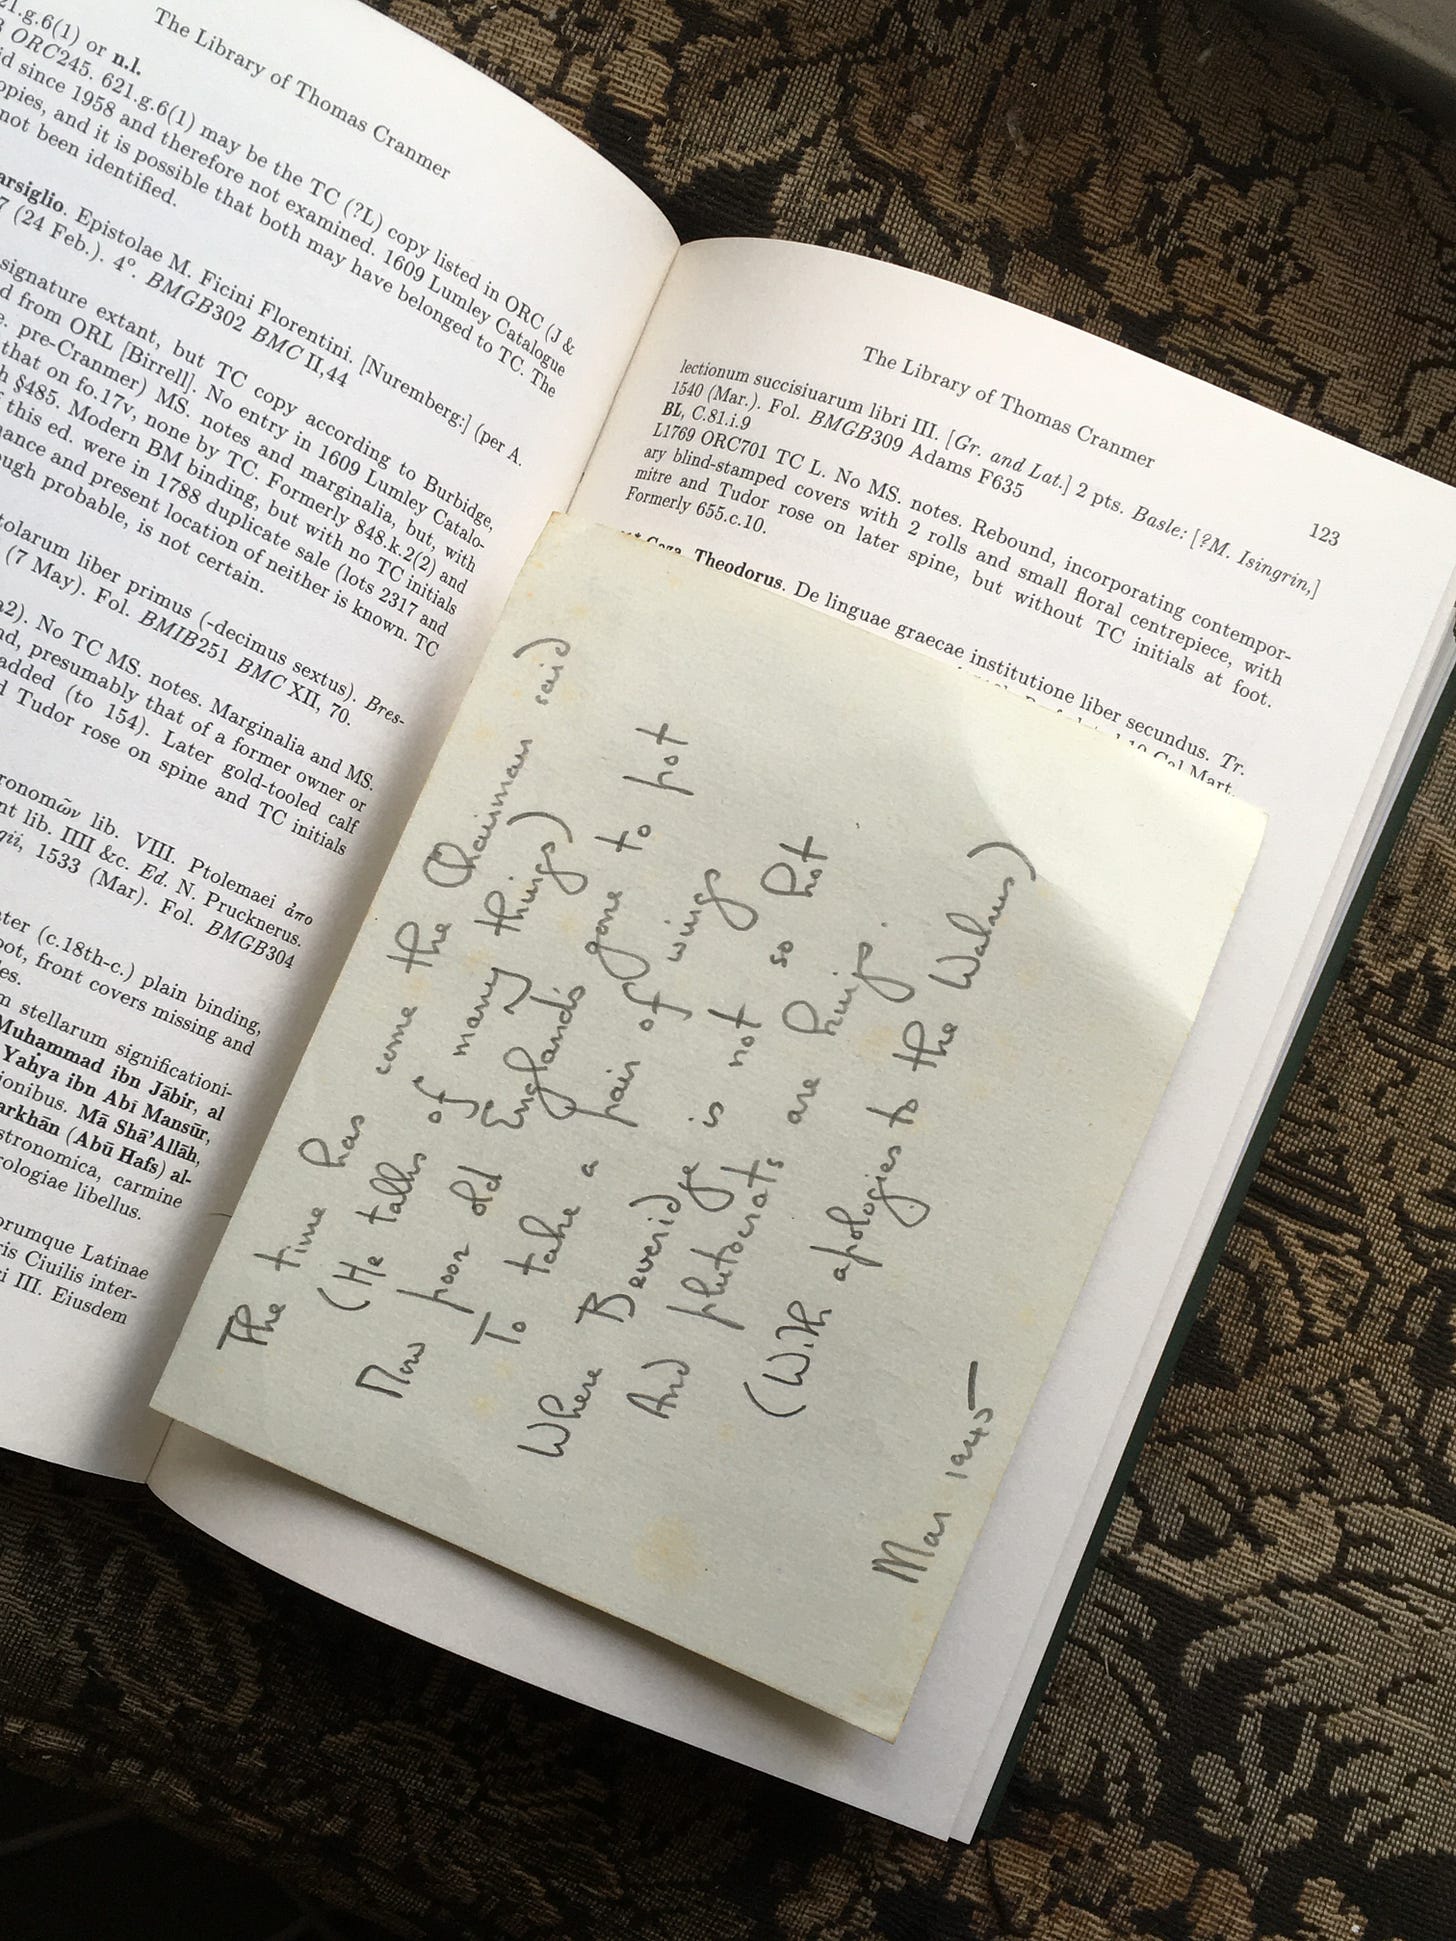 The Library of Thomas Cranmer
21.g.6(1) or n.l.
ORC245. 621.g.6(1) may be the TC (?L) copy listed in ORC (J &
since 1958 and therefore not examined. 1609 Lumley Catalogue
opies, and it is possible that both may have belonged to TC. The
not been identified.
arsiglio. Epistolae M. Ficini Florentini. [Nuremberg:] (per A.
7 (24 Feb.). 4º. BMGB302 BMC II,44
signature extant, but TC copy according to Burbidge,
d from ORL [Birrell]. No entry in 1609 Lumley Catalo-
e. pre-Cranmer) MS. notes and marginalia, but, with
that on fo.17v, none by TC. Formerly 848.k.2(2) and
h §485. Modern BM binding, but with no TC initials
f this ed. were in 1788 duplicate sale (lots 2317 and
nance and present location of neither is known. TC
ough probable, is not certain.
tolarum liber primus (-decimus sextus). Bres-
(7 May). Fol. BMIB251 BMC XII, 70.
a2). No TC MS. notes. Marginalia and MS.
nd, presumably that of a former owner or
added (to 154). Later gold-tooled calf
d Tudor rose on spine and TC initials
ronomῶν lib. VIII. Ptolemaei ἀπο
nt lib. IIII &c. Ed. N. Prucknerus.
gii, 1533 (Mar). Fol. BMGB304
ater (c.18th-c.) plain binding,
oot, front covers missing and
es.
m stellarum significationi-
Muḥammad ibn Jābir, al
Yaḥya ibn Abī Mansūr,
ionibus. Mā Shā'Allāh,
arkhān (Abū Hafs) al-
stronomica, carmine
rologiae libellus.
orumque Latinae
ris Ciuilis inter-
i III. Eiusdem
The Library of Thomas Cranmer
123
lectionum succisiuarum libri III. [Gr. and Lat.] 2 pts. Basle: [?M. Isingrin,]
1540 (Mar.). Fol. BMGB309 Adams F635
BL, C.81.i.9
L1769 ORC701 TC L. No MS. notes. Rebound, incorporating contempor-
ary blind-stamped covers with 2 rolls and small floral centrepiece, with
mitre and Tudor rose on later spine, but without TC initials at foot.
Formerly 655.c.10.
Gaza, Theodorus. De linguae graecae institutione liber secundus. Tr.
The time has come the Chairman said
(He talks of many things)
Now poor old England's gone to pot
To take a pair of wings
Where Beveridge is not so hot
And plutocrats are kings.
(With apologies to the Walrus)
Mar 1945